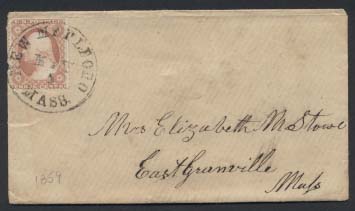 NEW MARLBORO
MASS.
Mrs Elizabeth M Stowe
East Granville
Mass
1859